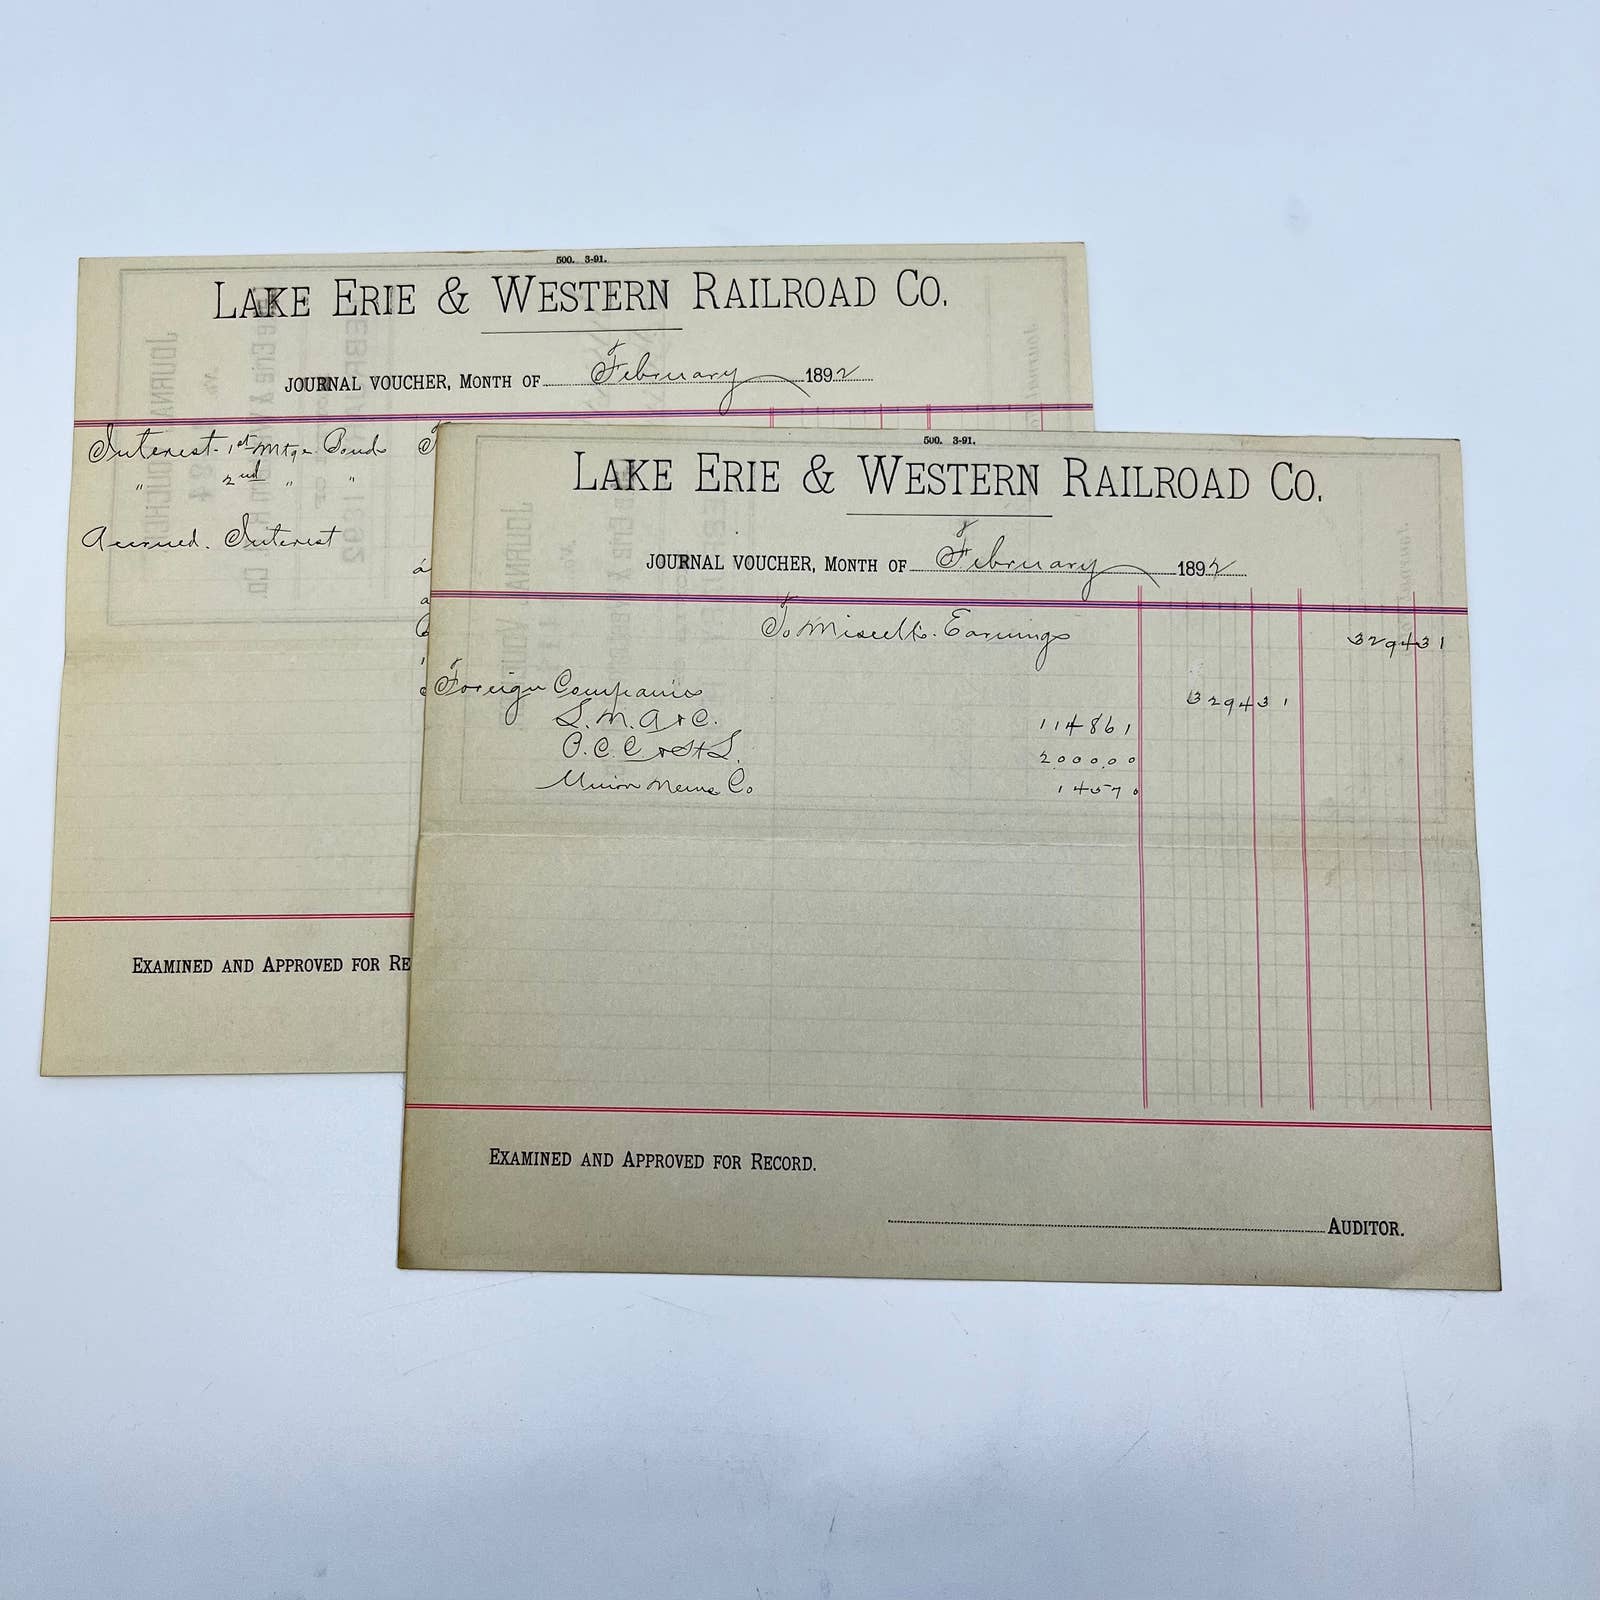 500. 3-91.
LAKE ERIE & WESTERN RAILROAD CO.
JOURNAL VOUCHER, MONTH OF February 1892
Interest 1st Mtge Bonds
" 2nd " "
Accrued Interest
EXAMINED AND APPROVED FOR RE
500. 3-91.
LAKE ERIE & WESTERN RAILROAD CO.
JOURNAL VOUCHER, MONTH OF February 1892
To Miscells. Earnings 329431
Foreign Companies 329431
L. N. A & C. 114861
C. C. C & St L. 200000
Union News Co 14570
EXAMINED AND APPROVED FOR RECORD.
AUDITOR.